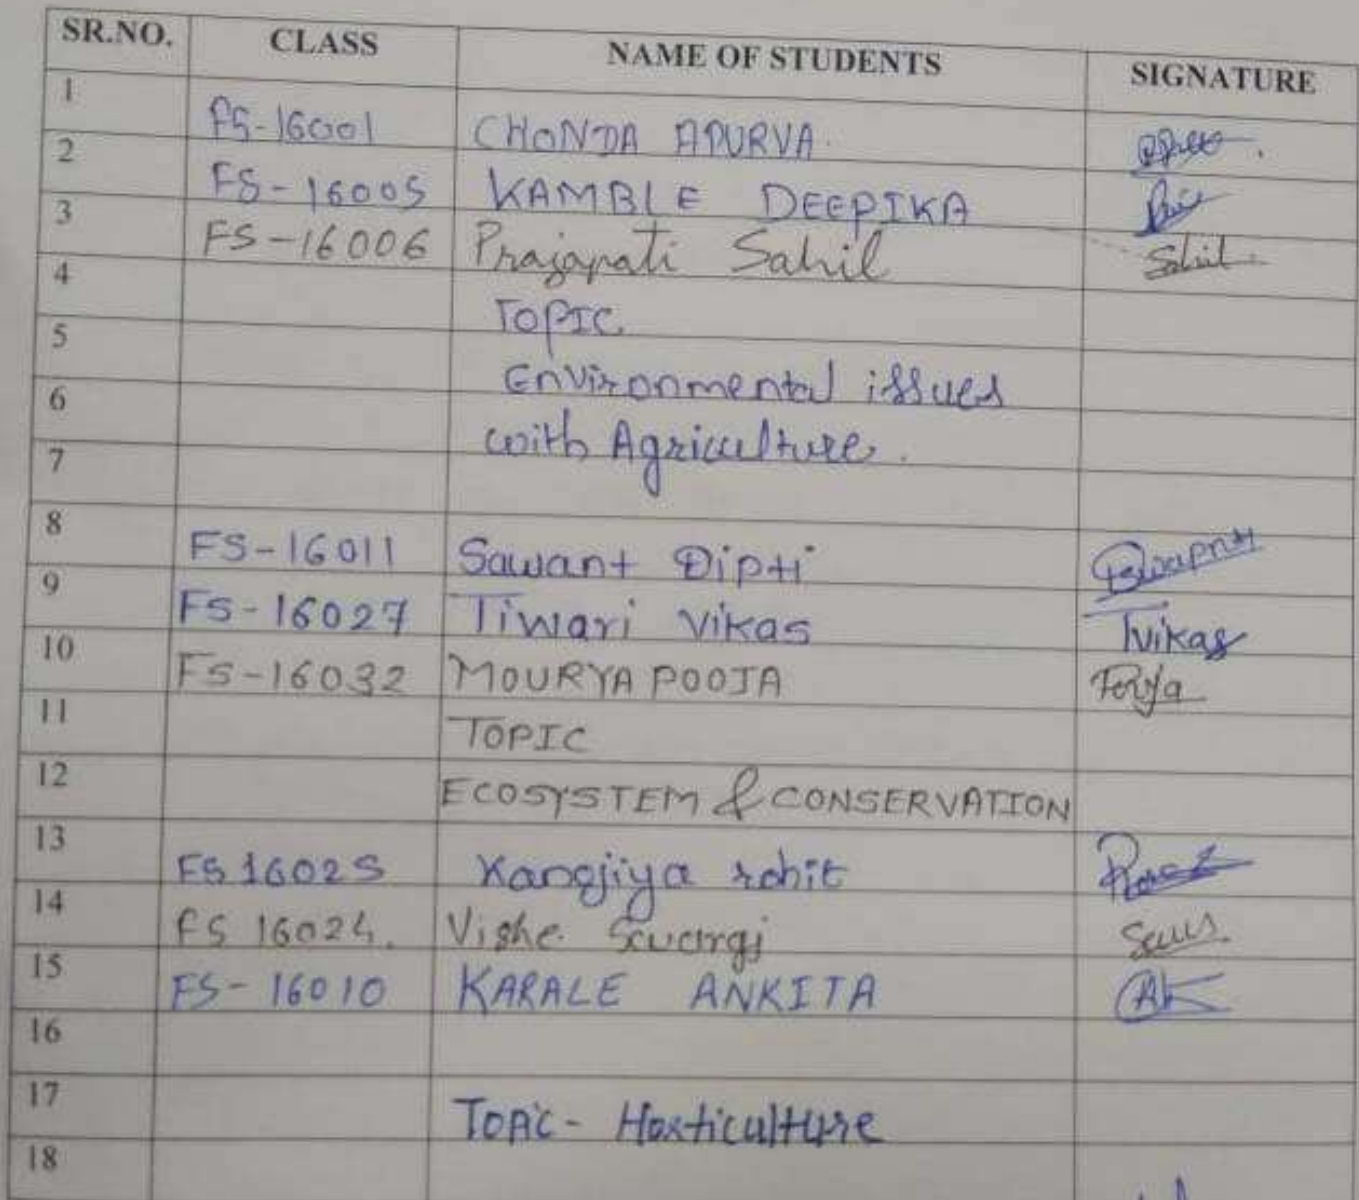 SR.NO. CLASS NAME OF STUDENTS SIGNATURE
1 FS-16001 CHONDA APURVA.
2 FS-16005 KAMBLE DEEPIKA
3 FS-16006 Prajapati Sahil Sahil
4 TOPIC
5 Environmental issues
6 with Agriculture.
7
8 FS-16011 Sawant Dipti
9 FS-16027 Tiwari Vikas Tvikas
10 FS-16032 MOURYA POOJA
11 TOPIC
12 ECOSYSTEM & CONSERVATION
13 FS 16025 Kangjiya rohit
14 FS 16024. Vishe
15 FS-16010 KARALE ANKITA
16
17 TOPIC - Horticulture
18